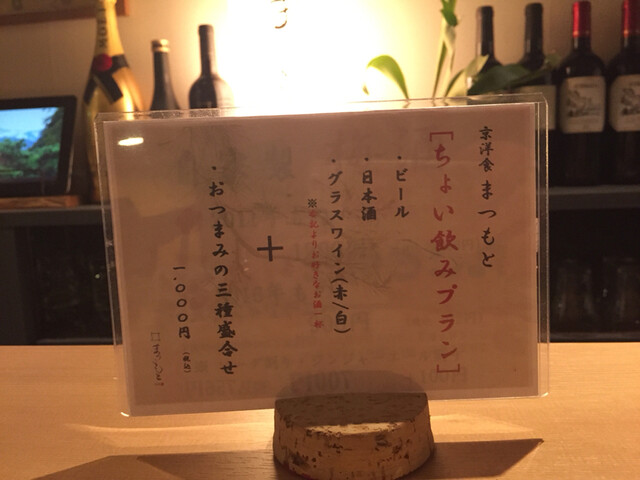 京洋食 まつもと
[ちょい飲みプラン]
・ビール
・日本酒
・グラスワイン(赤/白)
※右記よりお好きなお酒一杯
+
・おつまみの三種盛合せ
一.000円 (税込)
まつもと